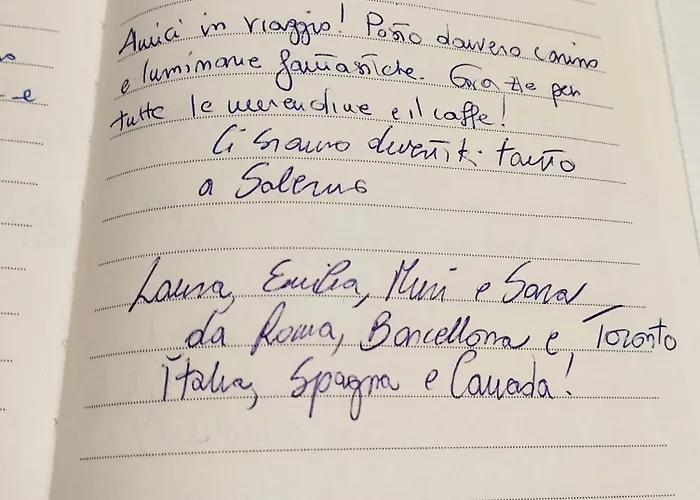 Amici in viaggio! Posto davvero carino
e luminarie fantastiche. Grazie per
tutte le merendine e il caffe!
Ci siamo divertiti tanto
a Salerno
Laura, Emilia, Miri e Sara
da Roma, Barcellona e, Toronto
Italia, Spagna e Canada!